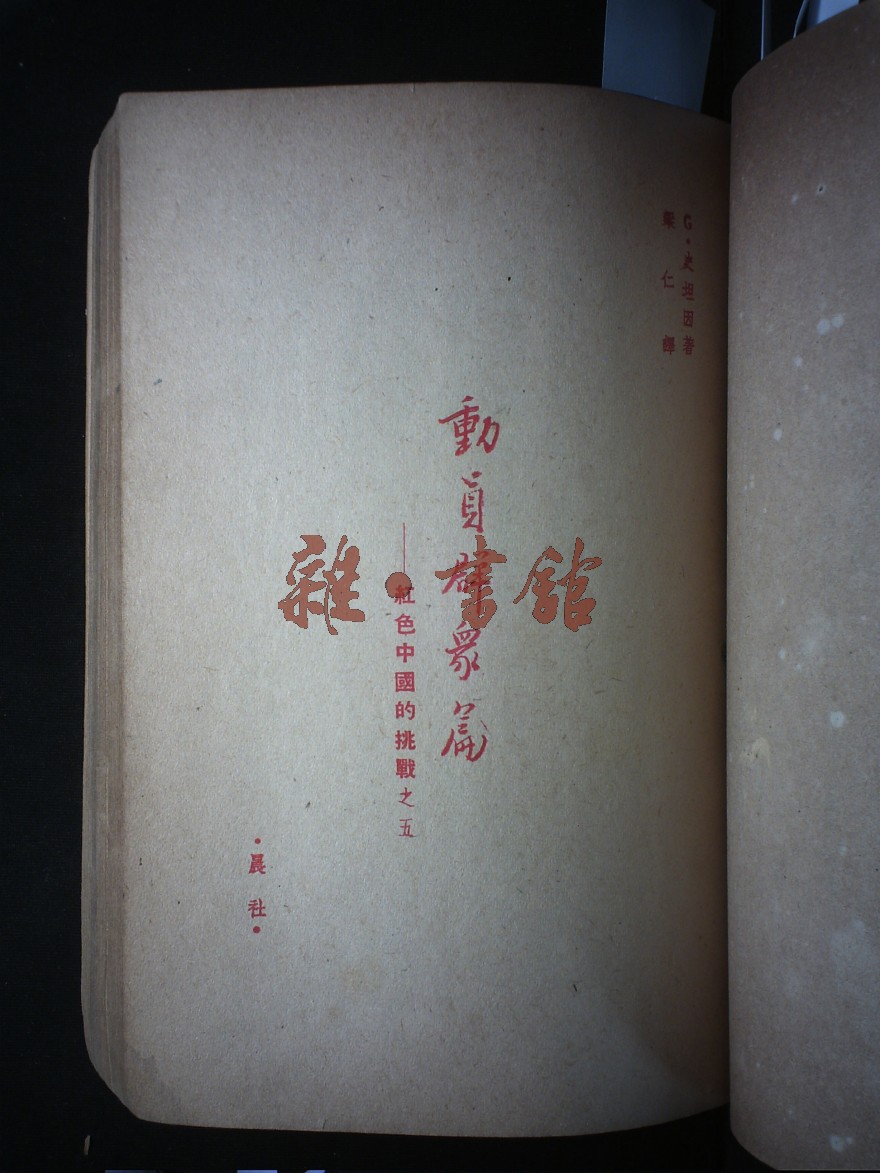 G·史坦因著
梁仁譯
動員群眾篇
——紅色中國的挑戰之五
·晨社·
雜·書館